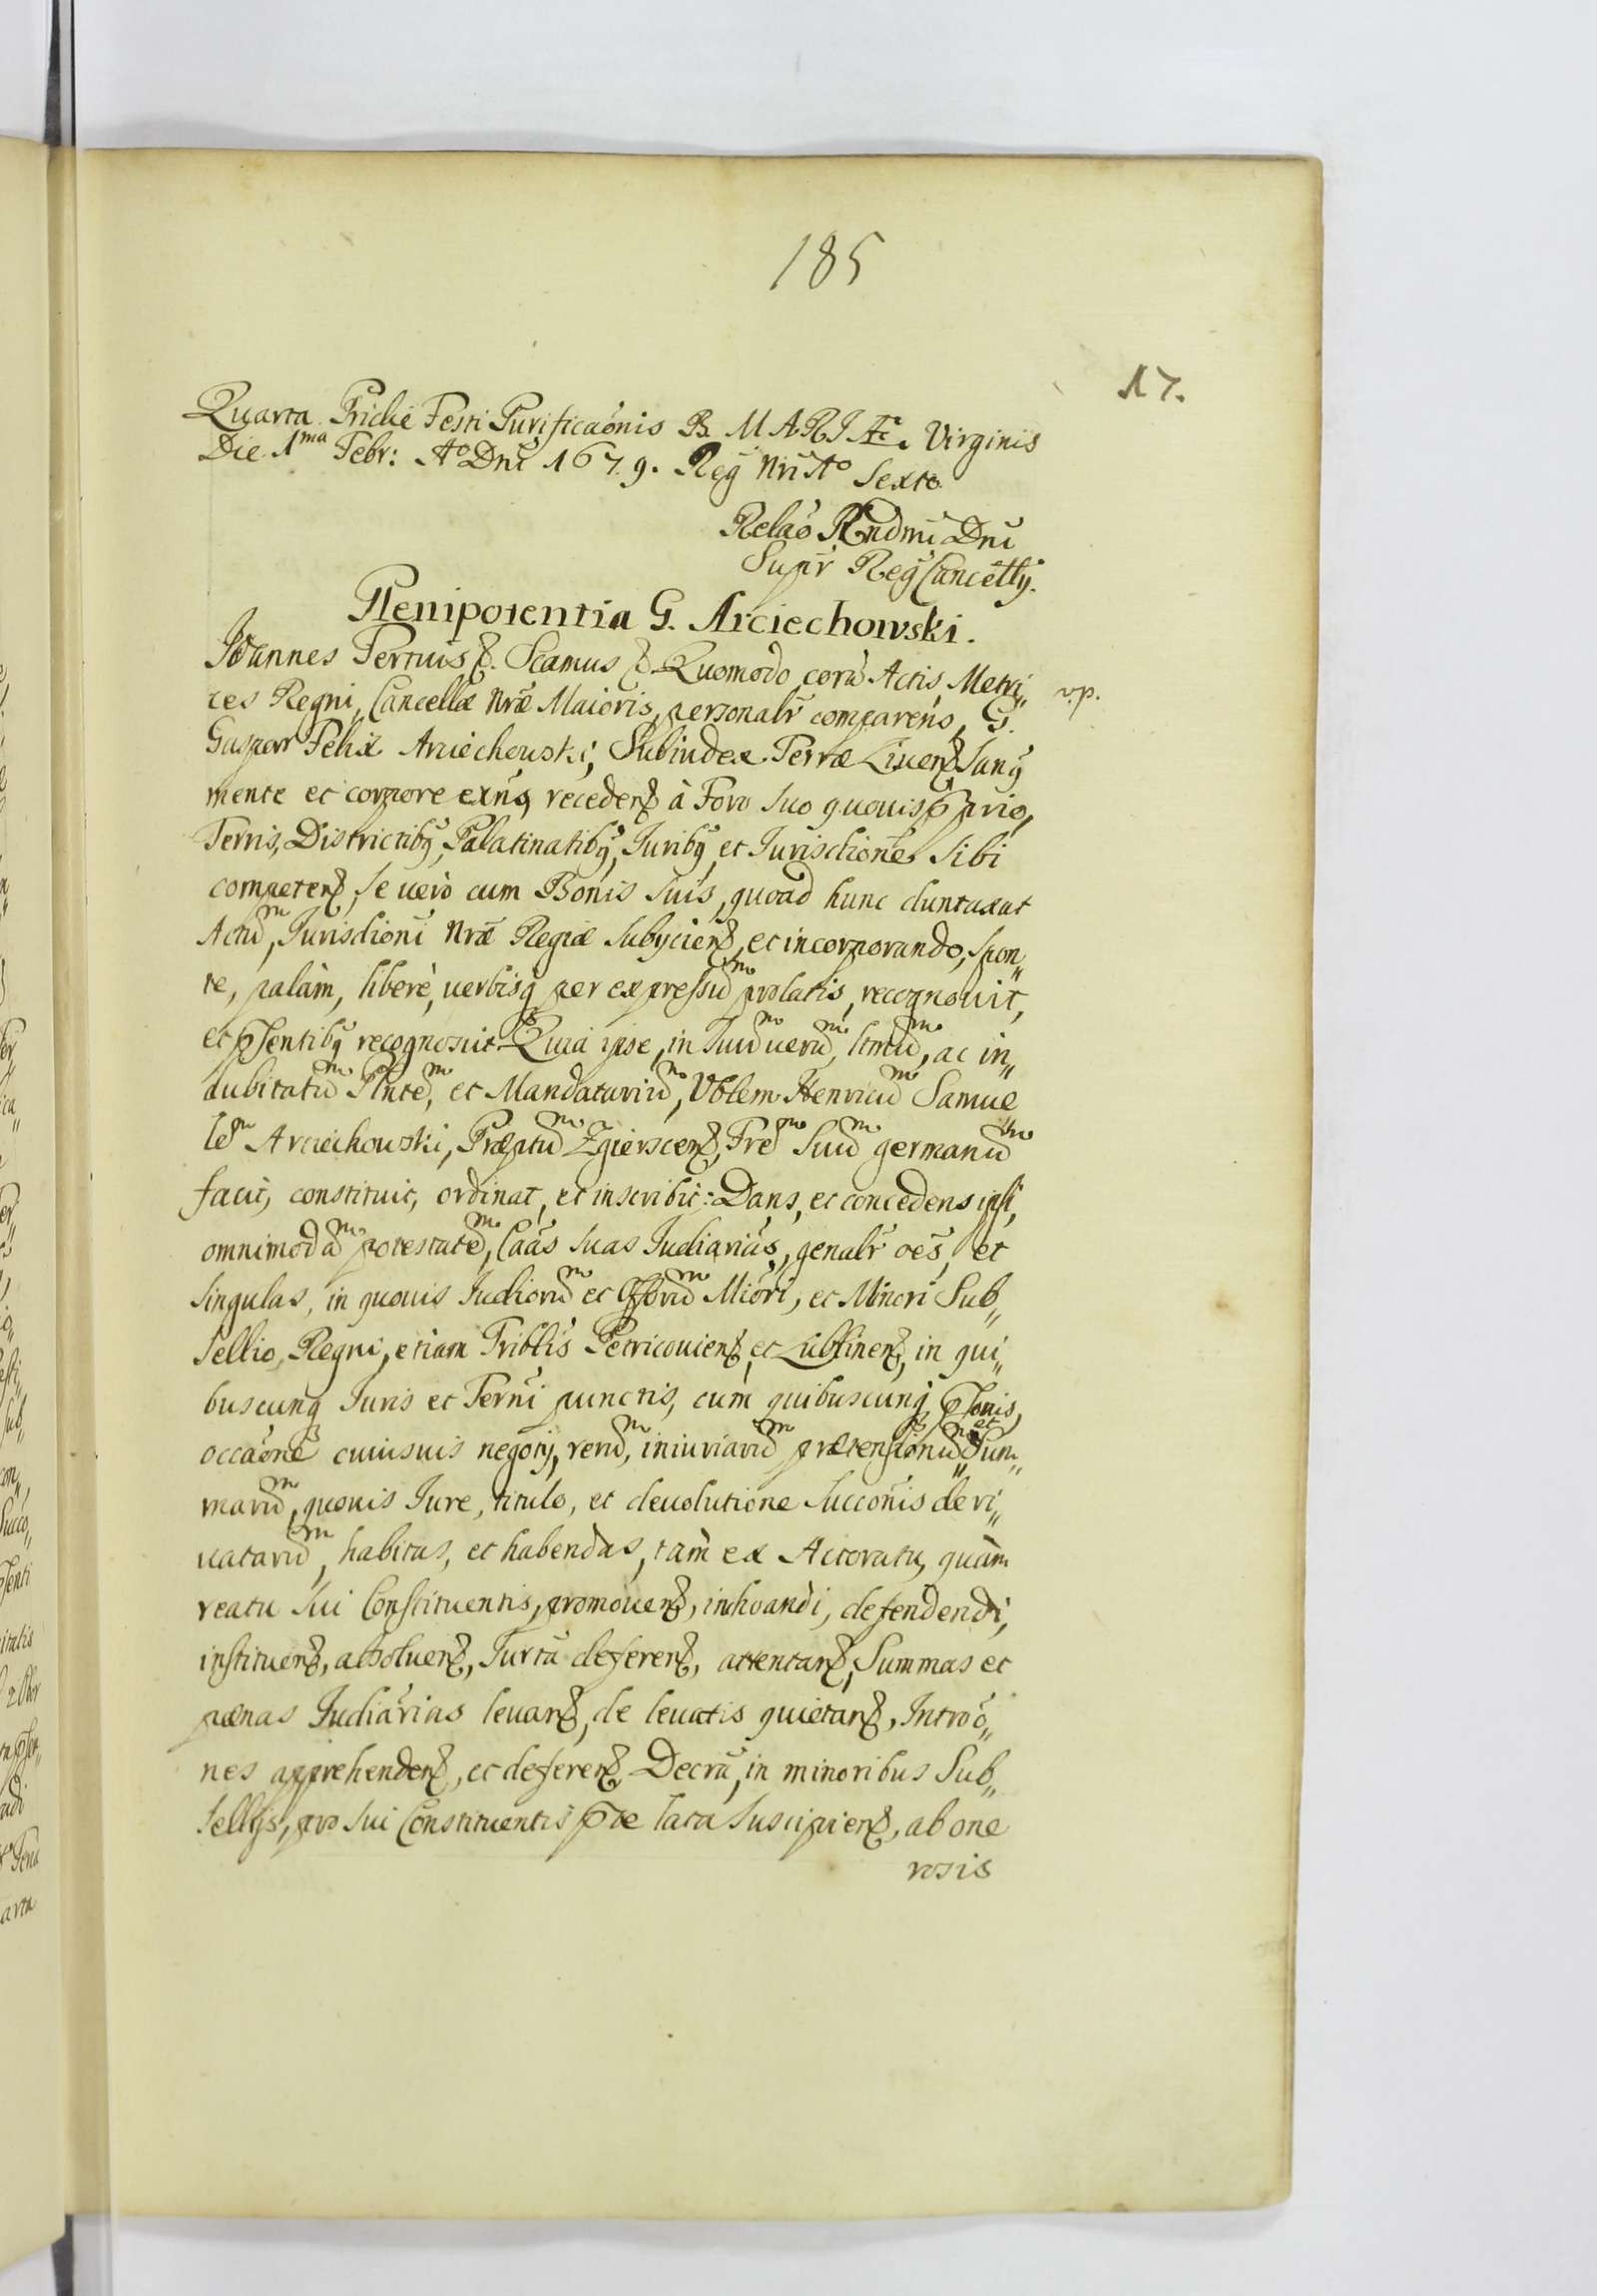 185
17.
Quarta Pridie Festi Purificaõnis B. MARIÆ Virginis
Die 1ma Febr: Ao Dni 1679. Reg Nri Ao Sexto
Relaõ Rndmi Dni
Supr Reg Cancellrÿ.
Plenipotentia G. Arciechowski.
Joannes Tertius &. Scamus & Quomodo corã Actis Metri„
v.p.
ces Regni, Cancellæ Nræ Maioris, personalr comparens, G.
Gaspar Felix Arciechowski, Subiudex Terræ Livens, Sanq
mente et corpore exns, recedens à Foro suo quovis pprio,
Terris, Districtibq, Palatinatibq, Juribq, et Jurisdione sibi
competens, se verò cum Bonis suis, quoad hunc duntaxat
Actum, Jurisdioni Nræ Regiæ subÿciens, et incorporando, spon„
te, palàm, liberè, verbisq per expressum prolatis, recognovit,
et psentibq recognoscit. Quia ipse, in suum verum, ltmum, ac in„
dubitatum Plntem, et Mandatarium, Gblem Henricum Samue
lem Arciechowski, Præptum Zgierscens, Frem suum germanum
facit, constituit, ordinat, et inscribit: Dans, et concedens ipsi,
omnimodam potestatem, Caãs suas Judiarias, genalr oẽs, et
singulas, in quovis Judiorum et Offorum Miori, et Minori Sub„
sellio, Regni, etiam Triblis Petricoviens, et Lublinens, in qui„
buscunq Juris et Terni punctis, cum quibuscunq psonis,
occaõne cuiusvis negotÿ, rerum, iniuriarum prætensionum et Sum„
marum, quovis Jure, titulo, et devolutione Succõnis deri„
vatarum, habitas, et habendas, tàm ex Actoratu, quàm
reatu sui Constituentis, promovens, inchoandi, defendendi,
instituens, absolvens, Jurta deferens, attentans, Summas et
pænas Judiarias levans, de levatis quietans, Introõ„
nes apprehendens, et deferens Decra, in minoribus Sub„
sellÿs, pro sui Constituentis pte lata suscipiens, ab one
rosis